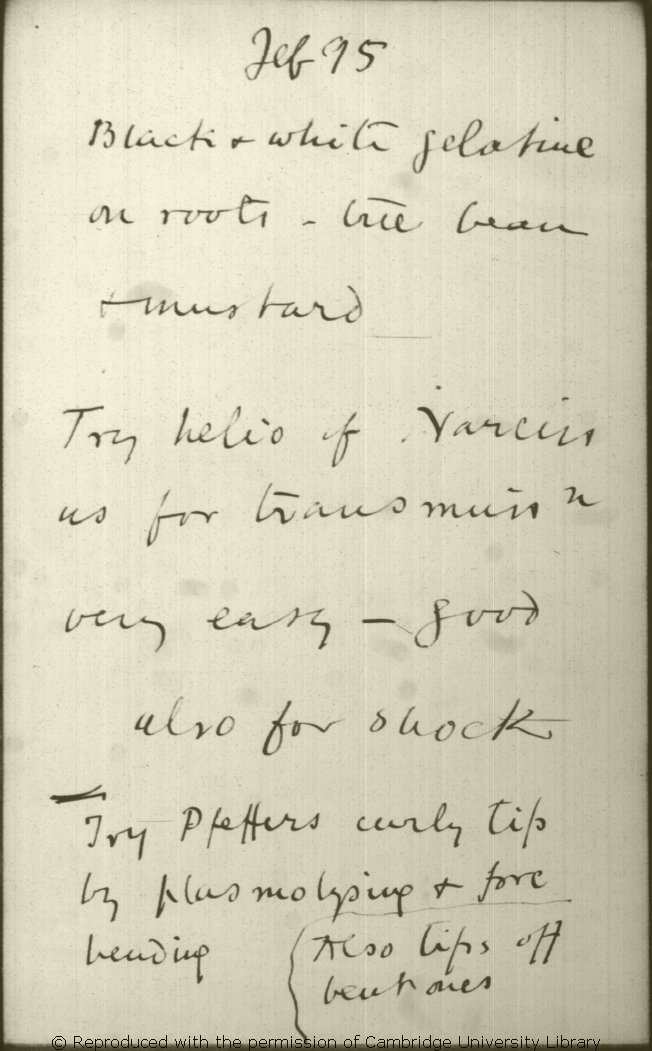 Feb 95
Black & white gelatine
on roots - bean
& mustard
Try helio of Narciss
us for transmissn
very easy — good
also for shock
Try Pfeffers curly tip
by plasmolysing & forc
bending
Also tips off
bent ones
© Reproduced with the permission of Cambridge University Library